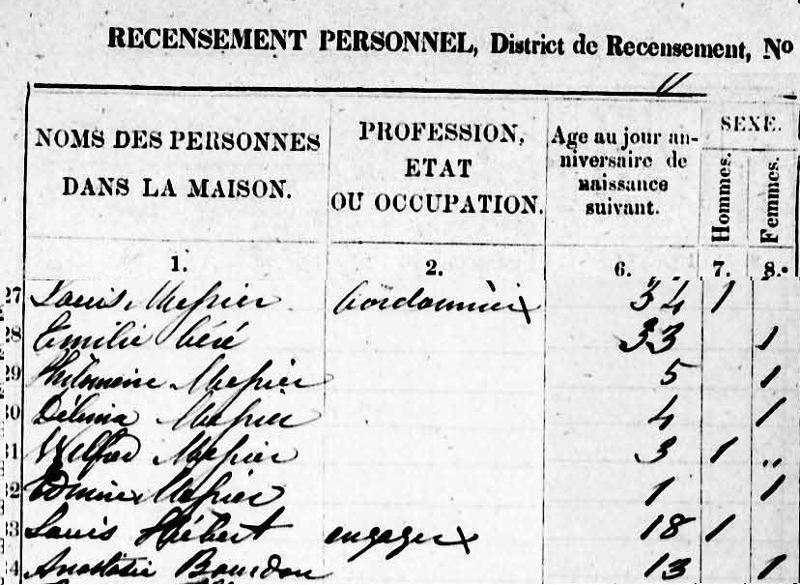 RECENSEMENT PERSONNEL, District de Recensement, No
NOMS DES PERSONNES DANS LA MAISON.
PROFESSION, ETAT OU OCCUPATION.
Age au jour anniversaire de naissance suivant.
SEXE.
Hommes.
Femmes.
1. 2. 6. 7. 8.
27 Louis Messier 34 1
28 Emilie 33 1
29 Philomène Messier 5 1
30 Délima Messier 4 1
31 Wilfrid Messier 3 1 "
32 Messier 1 1
33 Louis Hébert engagé x 18 1
34 Anastasie Bourdon 13 1